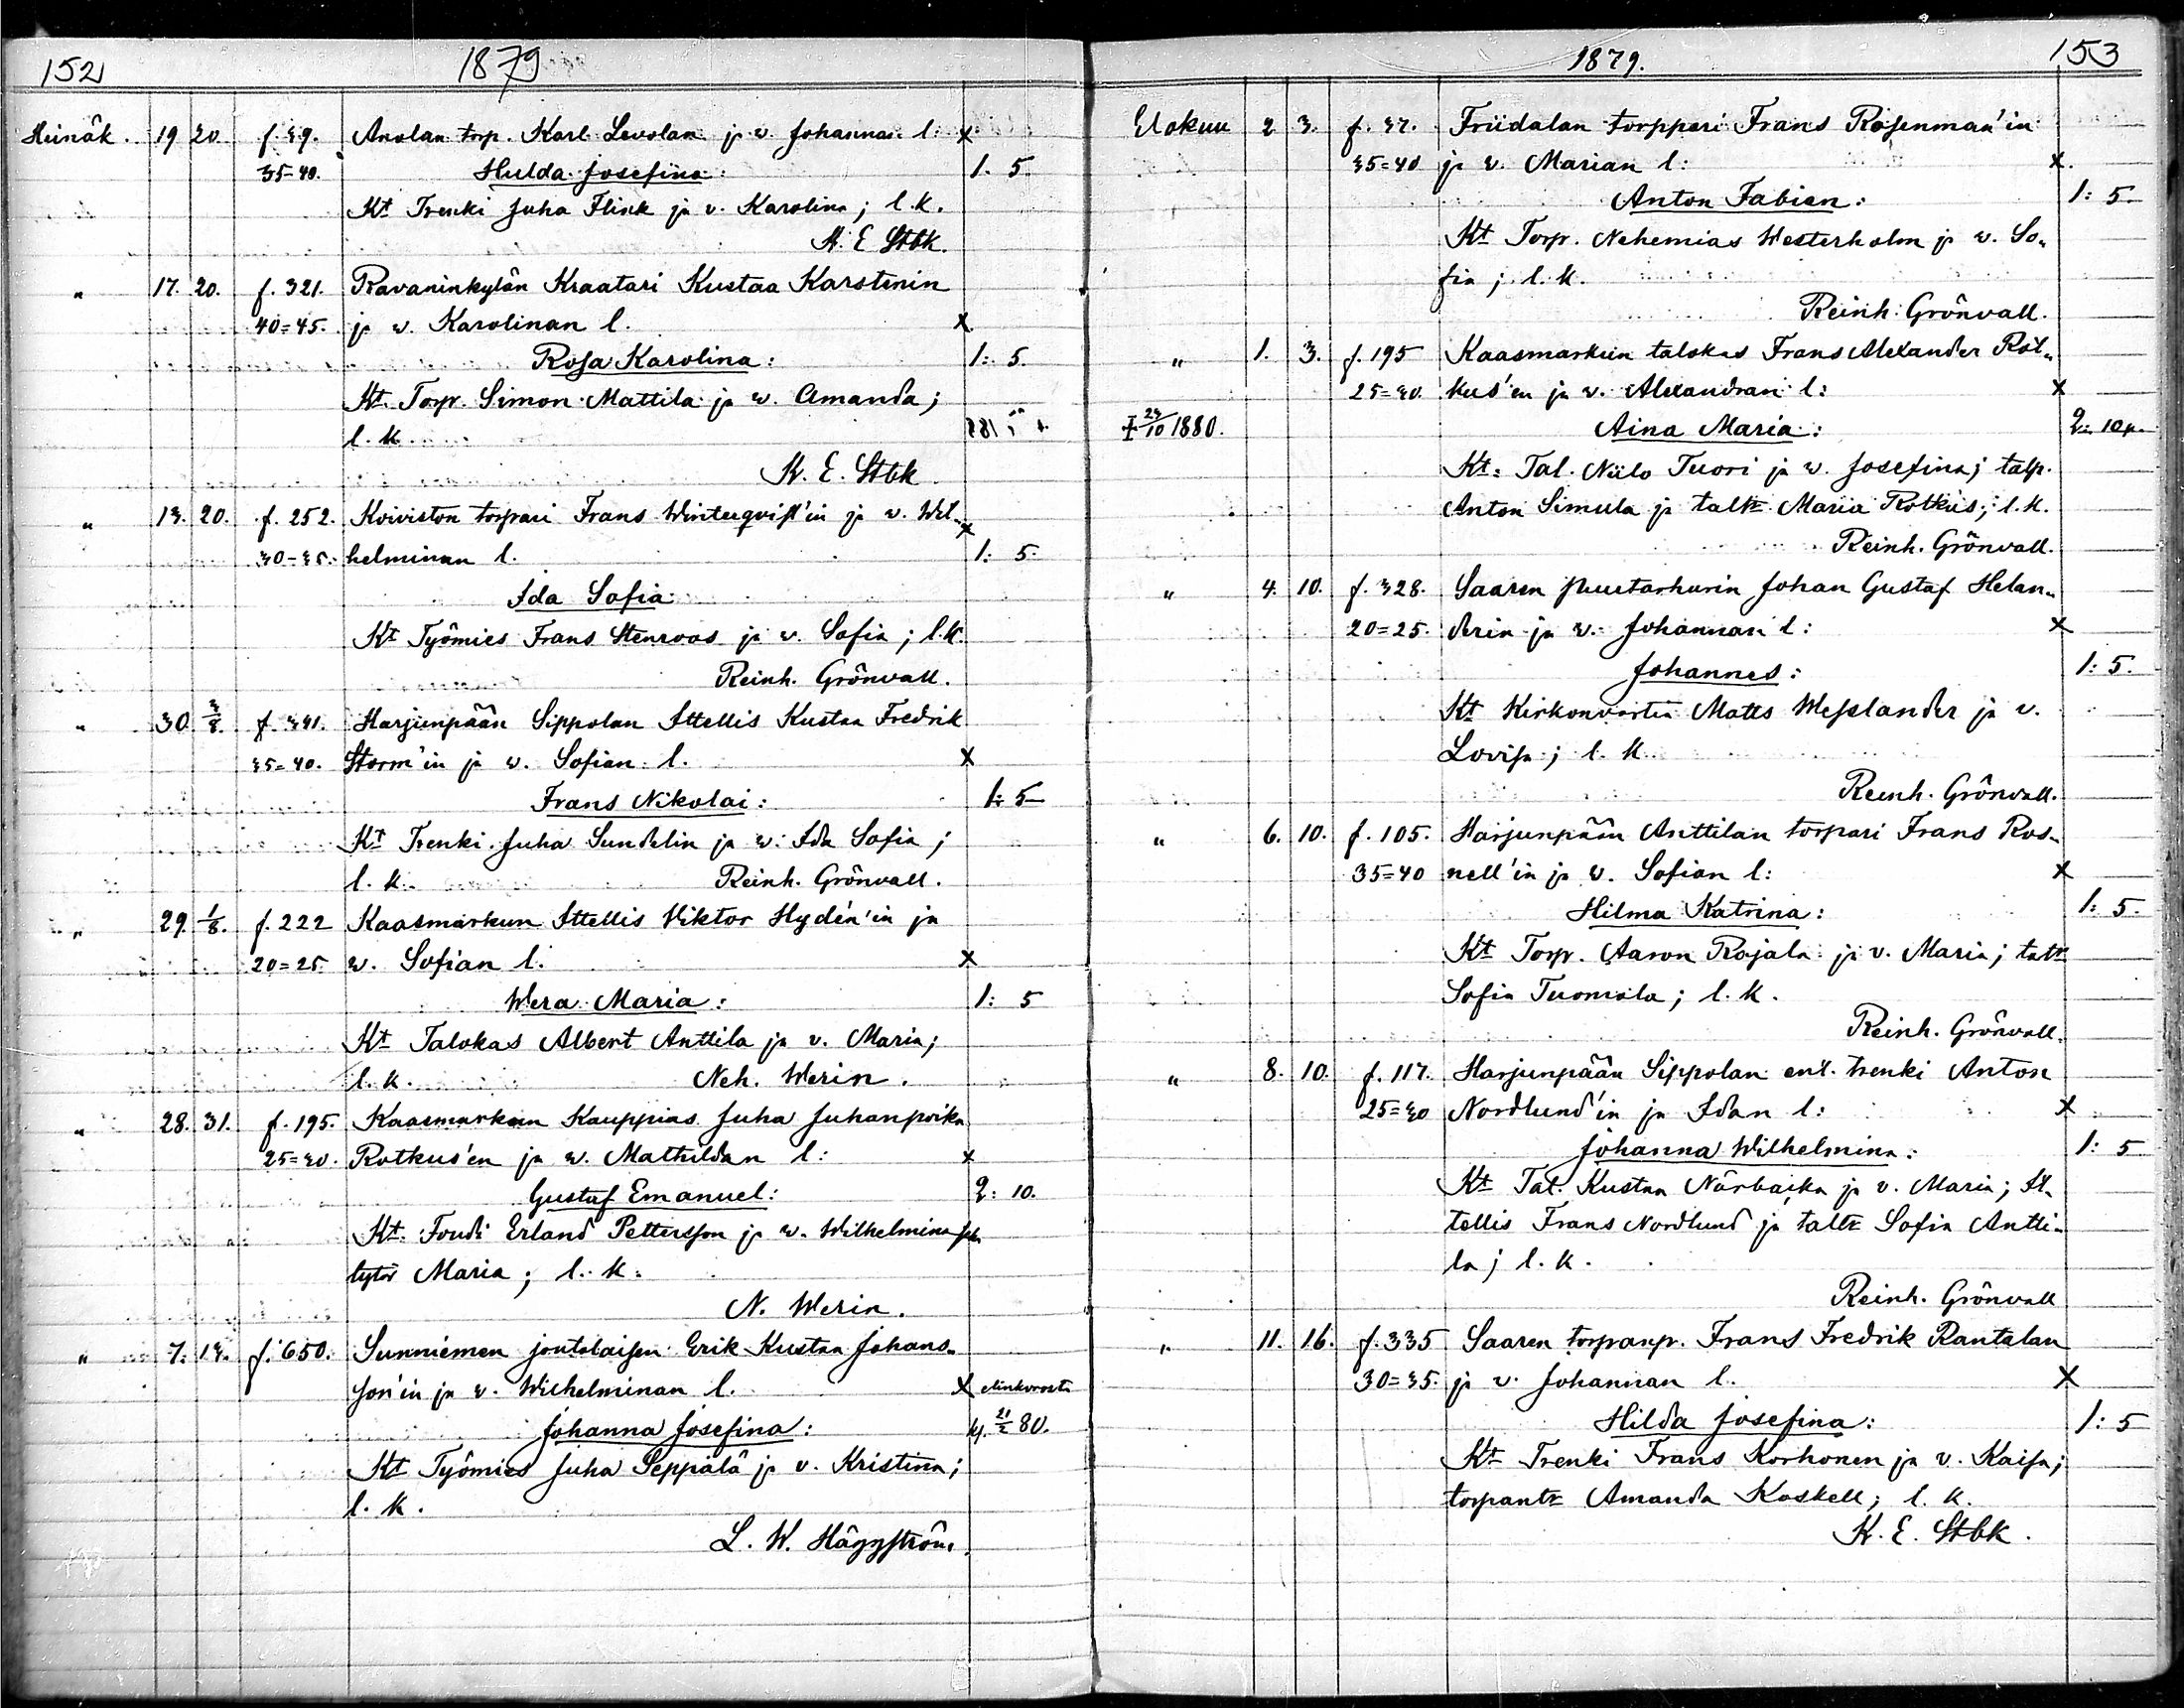 152 1879
Heinäk. 19 20. f. 39. Anolan torp. Karl Levolan ja v. Johannan l: X
35-40. Hulda Josefina: 1. 5.
Kt Trenki Juha Flink ja v. Karolina; l. k.
K. E Stbk.
" 17. 20. f. 321. Ravaninkylän Kraatari Kustaa Karstenin
40=45. ja w. Karolinan l. X
Rosa Karolina: 1: 5.
Kt. Torp. Simon Mattila ja w. Amanda;
l. k.
K. E. Stbk
" 13. 20. f. 252. Koiviston torpari Frans Winterqvist'in ja w. Wil- X
30-35. helminan l. 1: 5.
Ida Sofia
Kt Työmies Frans Stenroos ja v. Sofia; l. k.
Reinh. Grönvall.
" 30. 3/8. f. 341. Harjunpään Sippolan Ittellis Kustaa Fredrik
35=40. Storm'in ja w. Sofian l. X
Frans Nikolai: 1: 5
Kt Trenki Juha Sundelin ja w. Ida Sofia;
l. k. Reinh. Grönvall.
" 29. 1/8. f. 222 Kaasmarkun Ittellis Viktor Hydén'in ja
20=25. w. Sofian l. X
Wera Maria: 1: 5
Kt Talokas Albert Anttila ja v. Maria;
l. k. Neh. Werin.
" 28. 31. f. 195. Kaasmarkun Kauppias Juha Juhanpoika
25=30. Rotkus'en ja w. Mathildan l: X
Gustaf Emanuel: 2: 10.
Kt. Foudi Erland Pettersson ja w. Wilhelmina sekä
tytär Maria; l. k.
N. Werin.
" 7. 13. f. 650. Sunniemen joutolaisen Erik Kustaa Johans-
son'in ja v. Wilhelminan l. X
Johanna Josefina: 21/2 80.
Kt Työmies Juha Seppälä ja v. Kristina;
l. k.
L. W. Häggström.
1879. 153
Elokuu 2 3. f. 37. Friidalan torppari Frans Rosenman'in
35=40 ja v. Marian l: X.
Anton Fabian: 1: 5.
Kt Torp. Nehemias Westerholm ja w. So-
fia; l. k.
Reinh. Grönvall.
" 1. 3. f. 195 Kaasmarkun talokas Frans Alexander Rot-
25=30. kus'en ja v. Alexandran l: X
‡ 24/10 1880. Aina Maria: 2: 10 p.
Kt: Tal. Niilo Tuori ja w. Josefina; talp.
Anton Simula ja taltr Maria Rotkus; l. k.
Reinh. Grönvall.
" 4. 10. f. 328. Saaren puutarhurin Johan Gustaf Helan-
20=25. derin ja v. Johannan l: X
Johannes: 1: 5.
Kt Kirkonvartia Matts Wesslander ja v.
Lovisa; l. k.
Reinh. Grönvall.
" 6. 10. f. 105. Harjunpään Anttilan torpari Frans Ros-
35=40 nell'in ja w. Sofian l: X
Hilma Katrina: 1: 5.
Kt Torp. Aaron Rajala ja v. Maria; taltr
Sofia Tuomola; l. k.
Reinh. Grönvall.
" 8. 10. f. 117. Harjunpään Sippolan ent. trenki Anton
25=30 Nordlund'in ja Idan l: X
Johanna Wilhelmina: 1: 5
Kt Tal. Kustaa Närbacka ja v. Maria; It-
tellis Frans Nordlund ja taltr Sofia Antti-
la; l. k.
Reinh. Grönvall
" 11. 16. f. 335 Saaren torpanp. Frans Fredrik Rantalan
30=35. ja v. Johannan l. X
Hilda Josefina: 1: 5
Kt Trenki Frans Korhonen ja v. Kaisa;
torpantr Amanda Koskell; l. k.
K. E. Stbk.